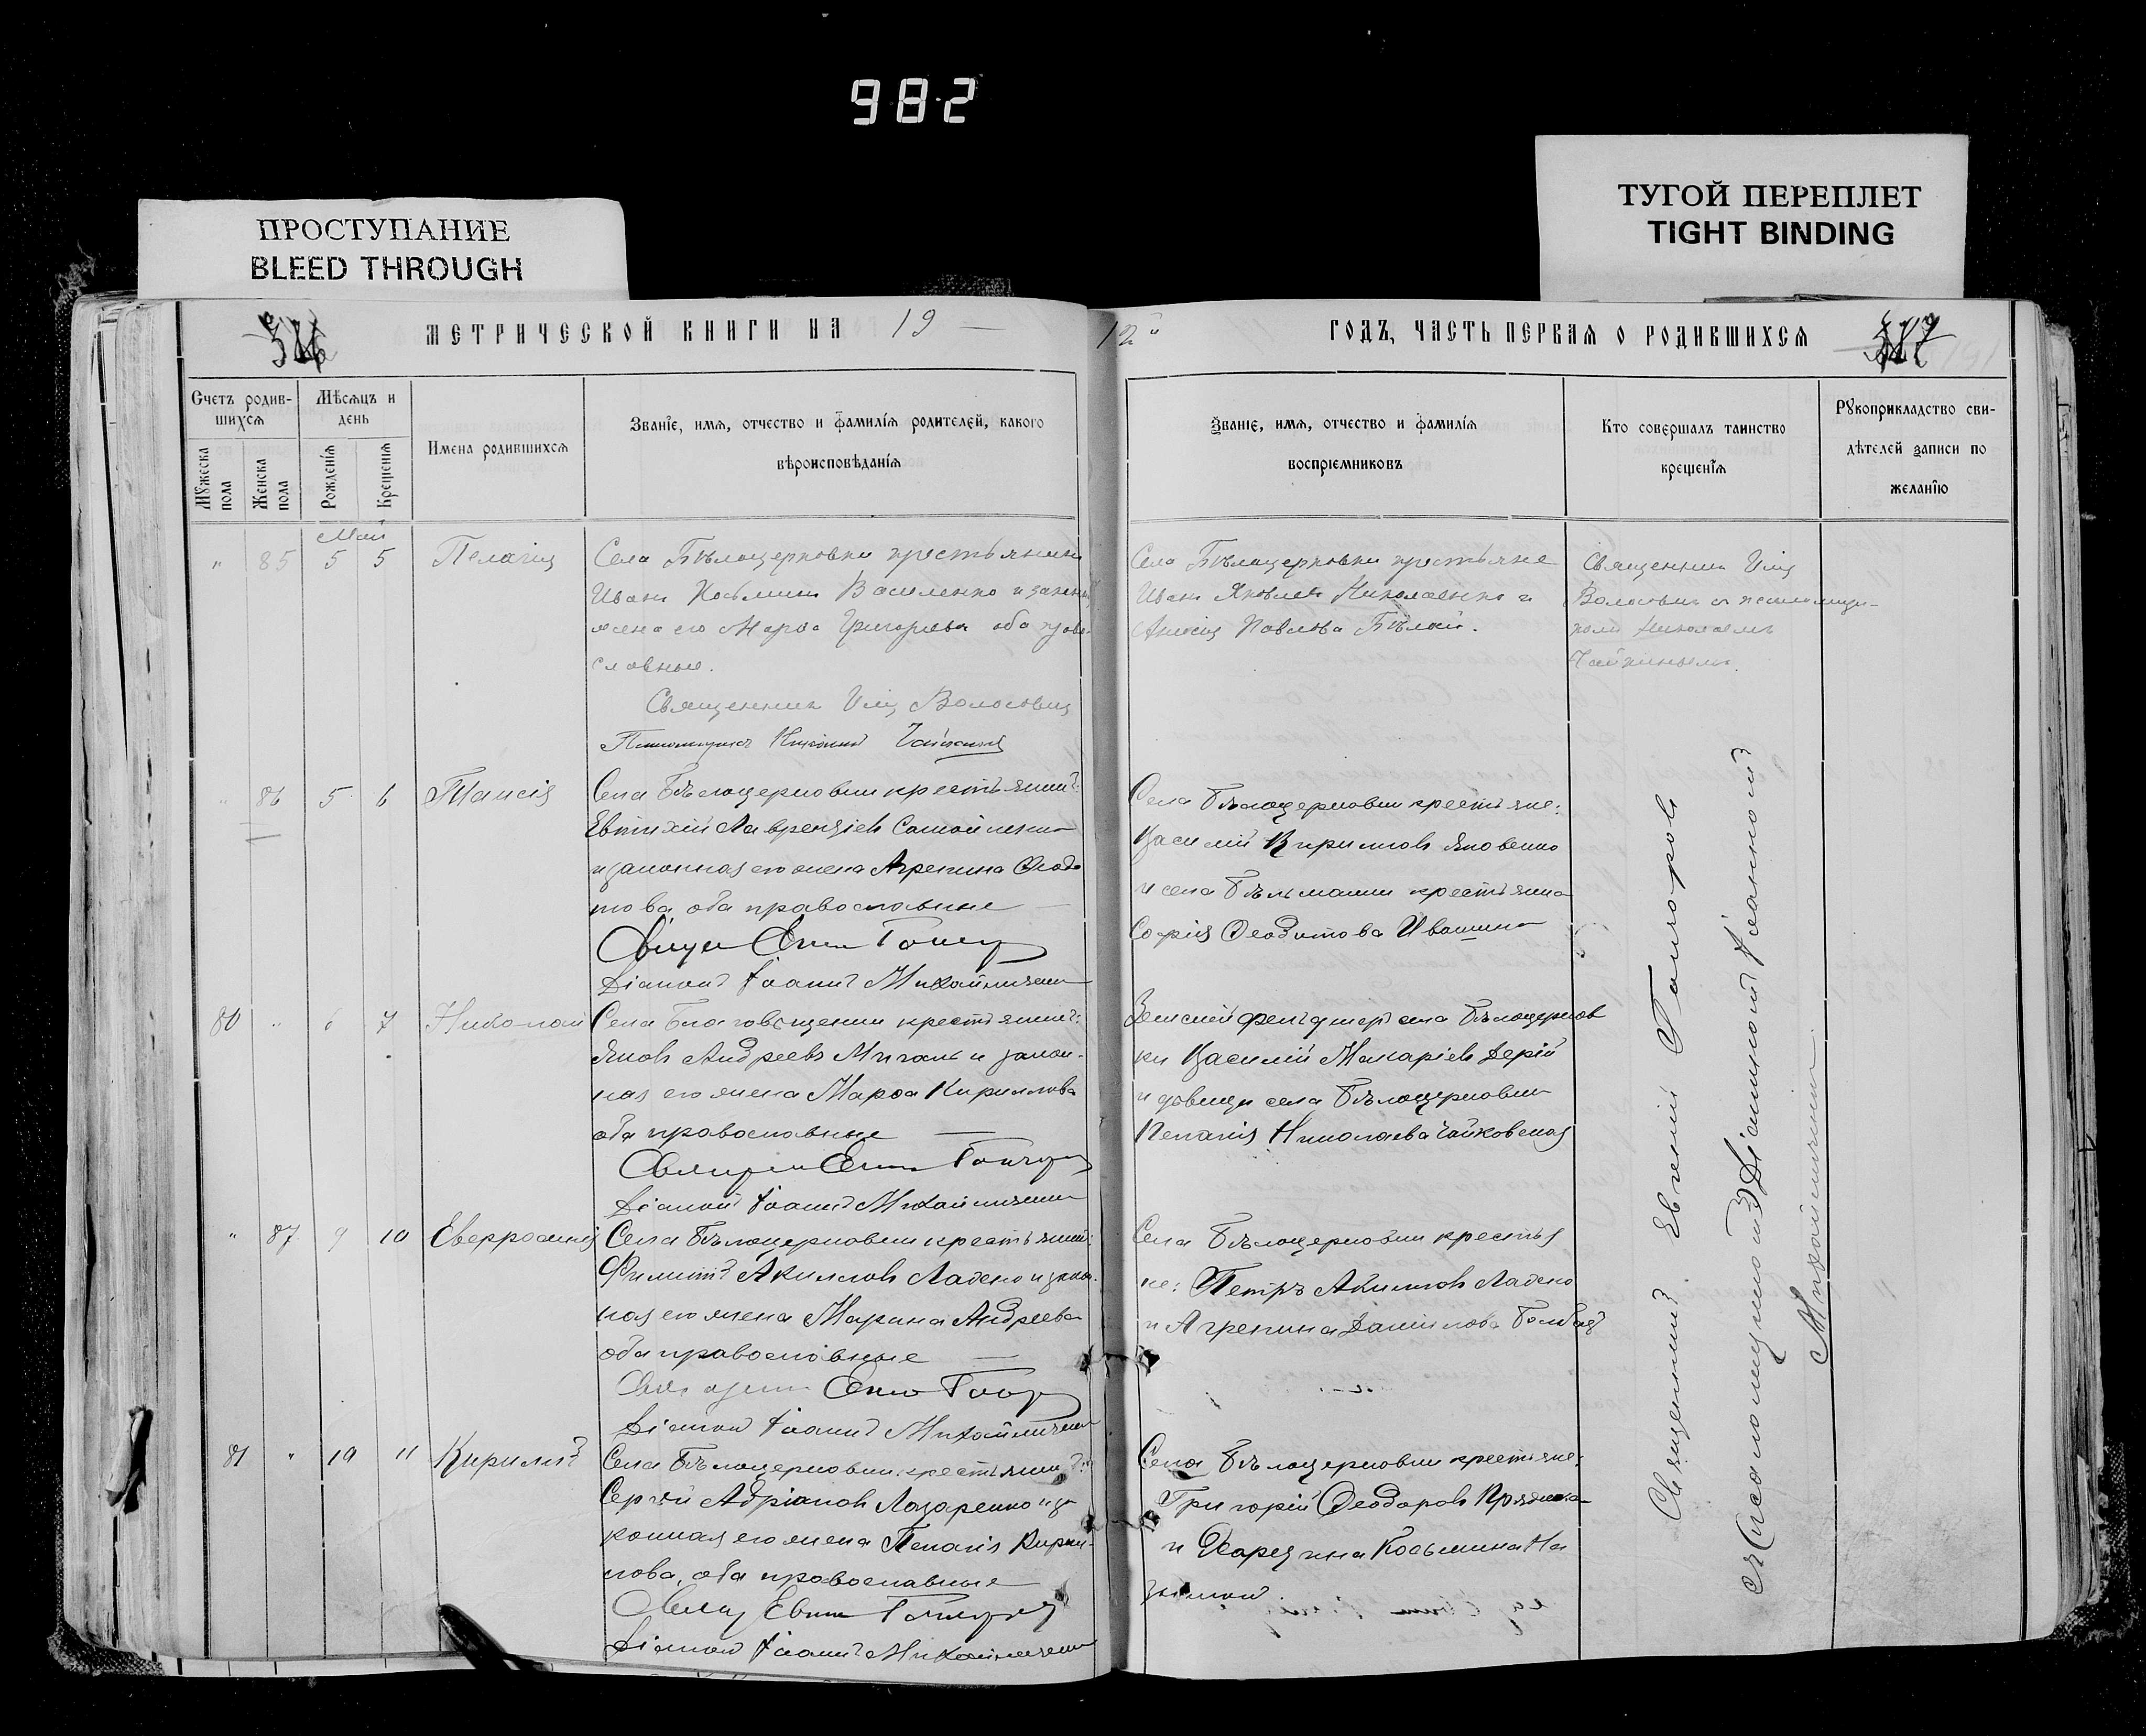 982
ПРОСТУПАНИЕ
BLEED THROUGH
ТУГОЙ ПЕРЕПЛЕТ
TIGHT BINDING
МЕТРИЧЕСКОЙ КНИГИ НА 19
12 ГОДЪ, ЧАСТЬ ПЕРВАЯ О РОДИВШИХСЯ
Счетъ родив-
шихся
Мужеска пола
Женска пола
Мѣсяцъ и
день
Рожденія
Крещенія
Имена родившихся
Званіе, имя, отчество и фамилія родителей, какого
вѣроисповѣданія
Званіе, имя, отчество и фамилія
воспріемниковъ
Кто совершалъ таинство
крещенія
Рукоприкладство сви-
дѣтелей записи по
желанію
Май
" 85 5 5 Пелагія
Села Бѣлоцерковки крестьянинъ
Иванъ Косьминъ Василенко и законн
жена его Марѳа Григорьева оба право-
славные.
Священникъ Илія Волосовичъ
Псаломщикъ Николай
Села Бѣлоцерковки крестьяне
Иванъ Яковлевъ Николаенко и
Павлова Бѣлай.
Священникъ Илія
съ псаломщи-
комъ Николаемъ
" 86 5 6 Таисія
Села Бѣлоцерковки крестьянинъ:
Евтихій Лаврентіевъ Самойленко
и законная его жена Агрепина Ѳеодо
това, оба православные
Діаконъ Іоаннъ Михайличенко
Села Бѣлоцерковки крестьяне:
Василій Кирилловъ Яковенко
и села Бѣльманки крестьянка
Софія Ѳеодотова Ивашина
80 " 6 7 Николай
Села Благовѣщенки крестьянинъ:
Яковъ Андреевъ и закон-
ная его жена Марѳа Кириллова
оба православные
Діаконъ Іоаннъ Михайличенко
Земскій фельдшеръ села Бѣлоцерков
ки Василій Макаріевъ Дерій
и дѣвица села Бѣлоцерковки
Пелагія Николаева Чайковская
" 87 9 10 Евфросинія
Села Бѣлоцерковки крестьянинъ:
Филиппъ Акимовъ Ладено и закон-
ная его жена Марина Андреева
оба православные
Діаконъ Іоаннъ Михайличенко
Села Бѣлоцерковки крестья
не: Петръ Акимовъ Ладено
и Агрепина Даніилова
81 " 10 11 Кириллъ
Села Бѣлоцерковки крестьянинъ:
Сергѣй Адріановъ Лазаренко и за
конная его жена Пелагія Кирил-
лова, оба православные
Діаконъ Іоаннъ Михайличенко
Села Бѣлоцерковки крестьяне:
Григорій Ѳеодоровъ
и Косьмина На
Священникъ Евгеній
съ псаломщикомъ Діакономъ Іоанномъ
Михайличенко